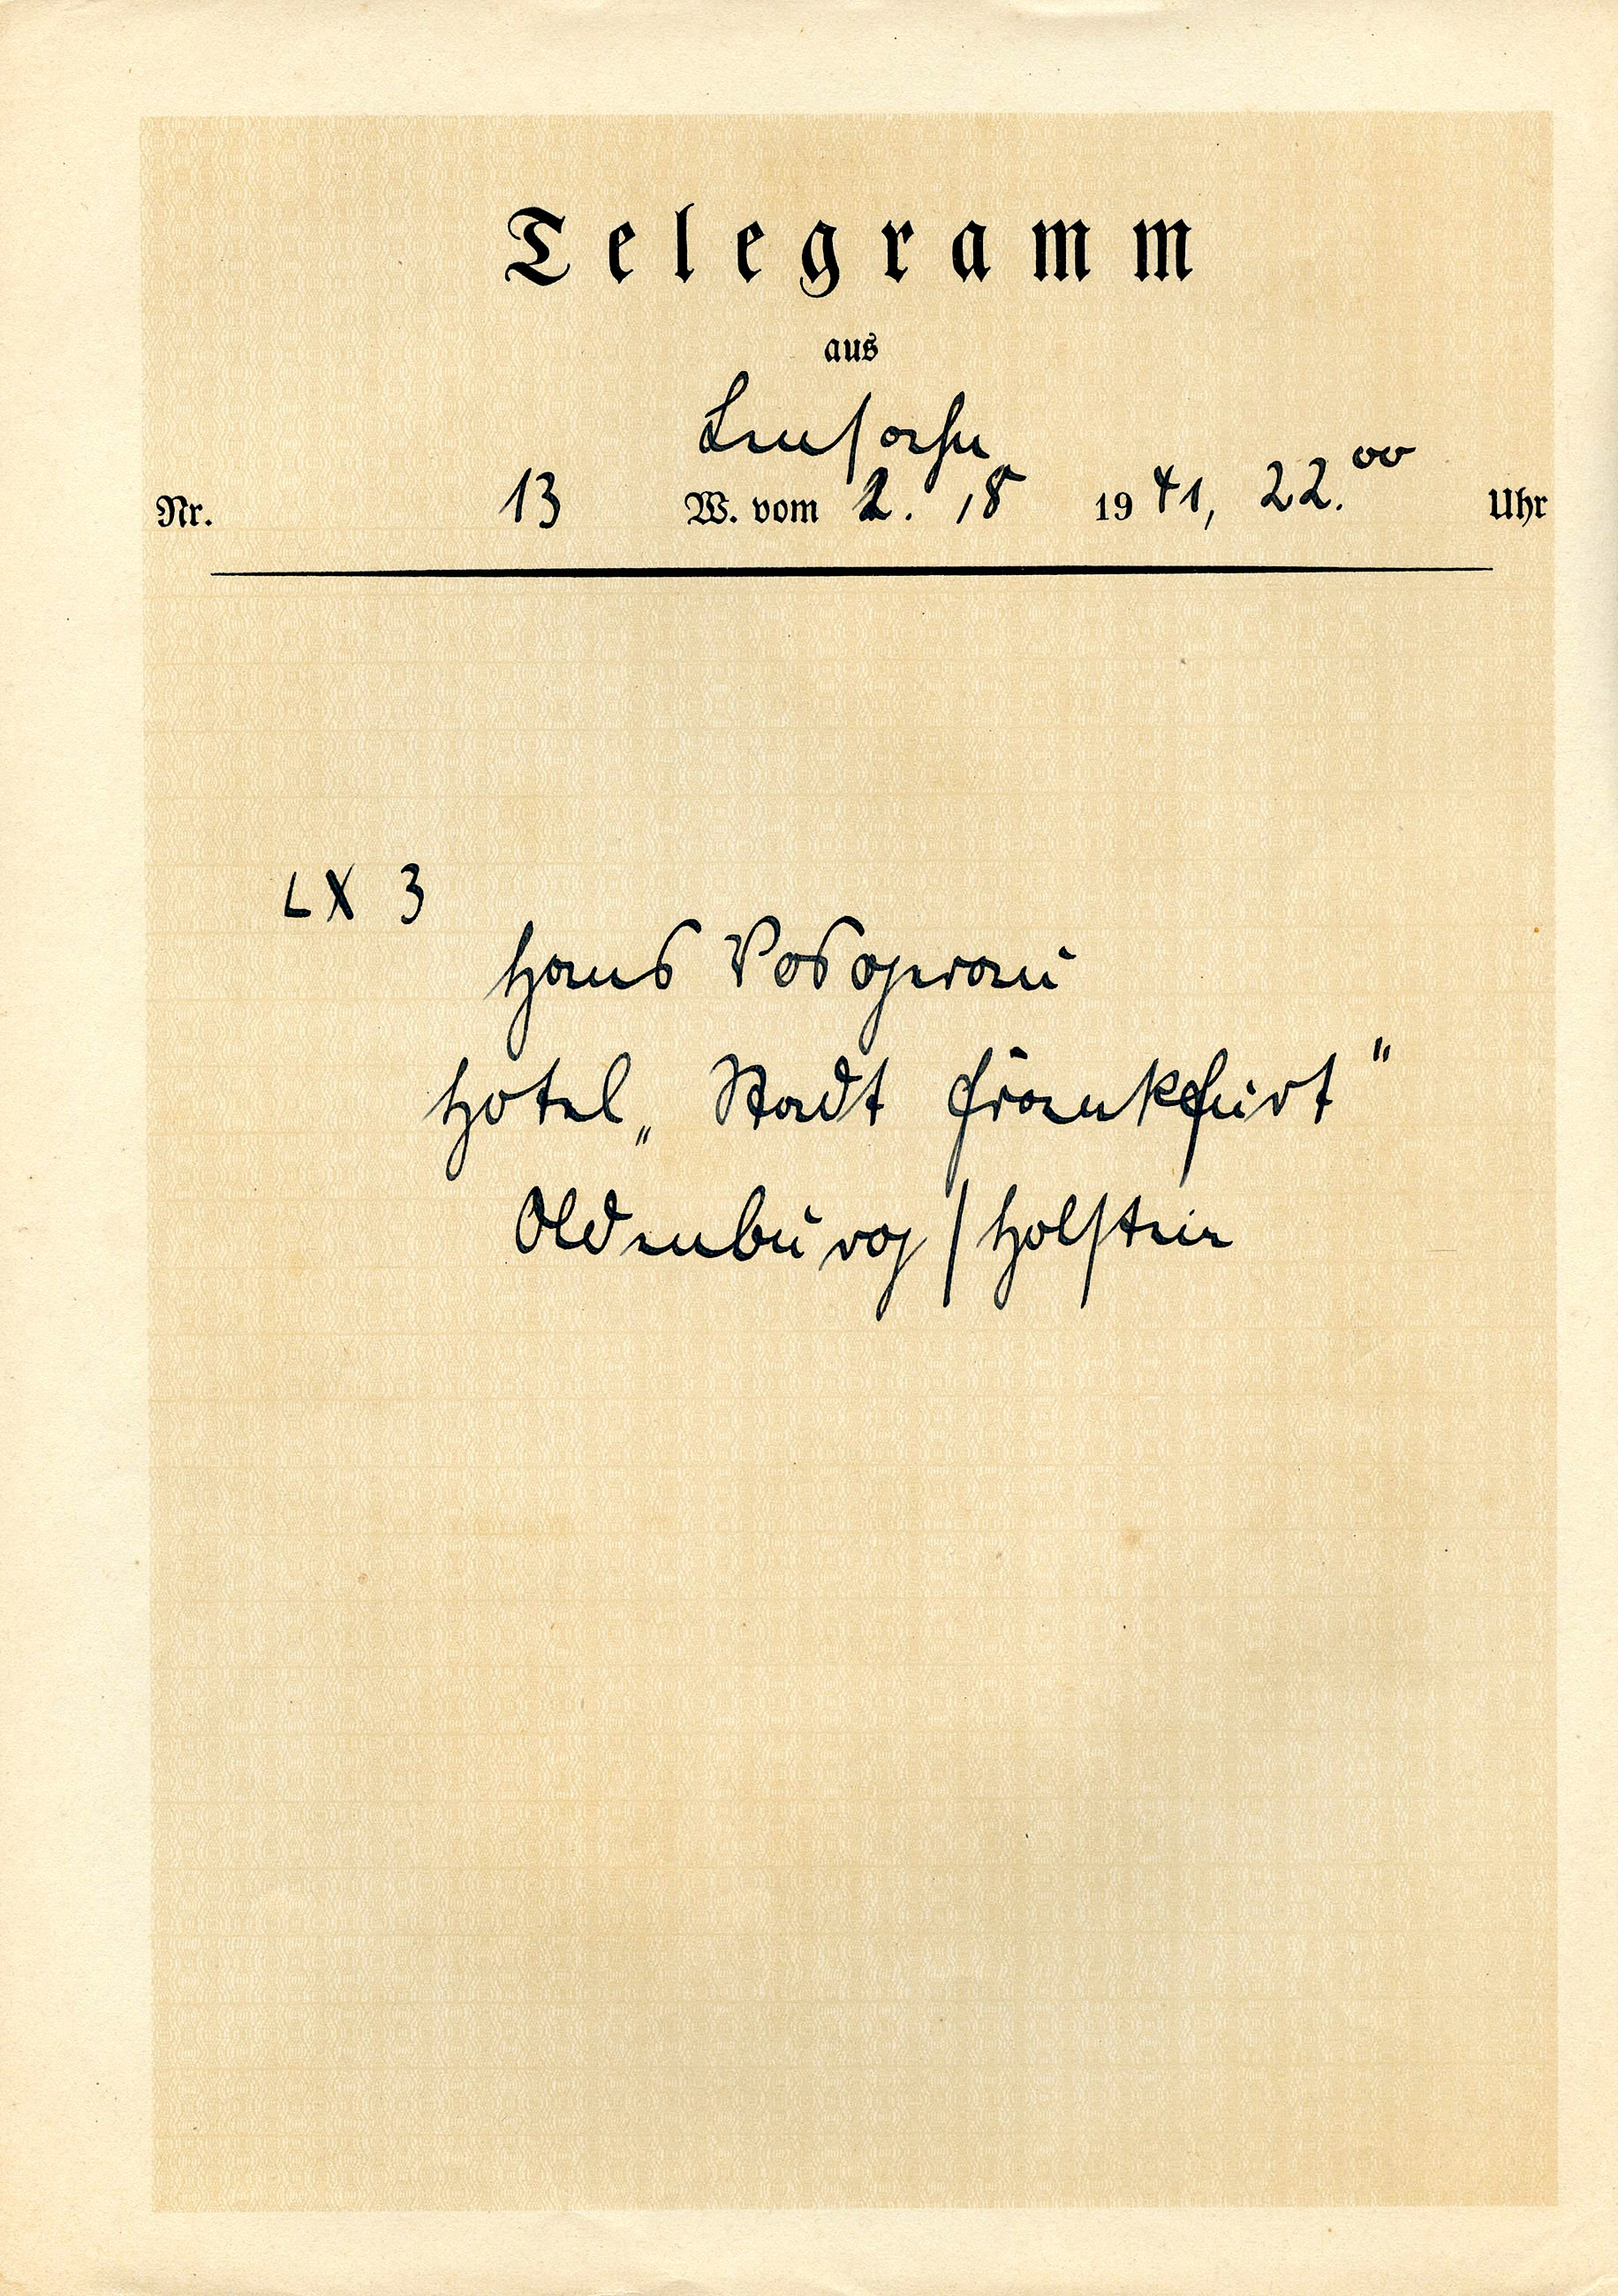 Telegramm
aus
Lensahn
Nr. 13 W. vom 2. /8 1941, 22.00 Uhr
LX 3
Hans
Hotel „Stadt Frankfurt"
Oldenburg/Holstein